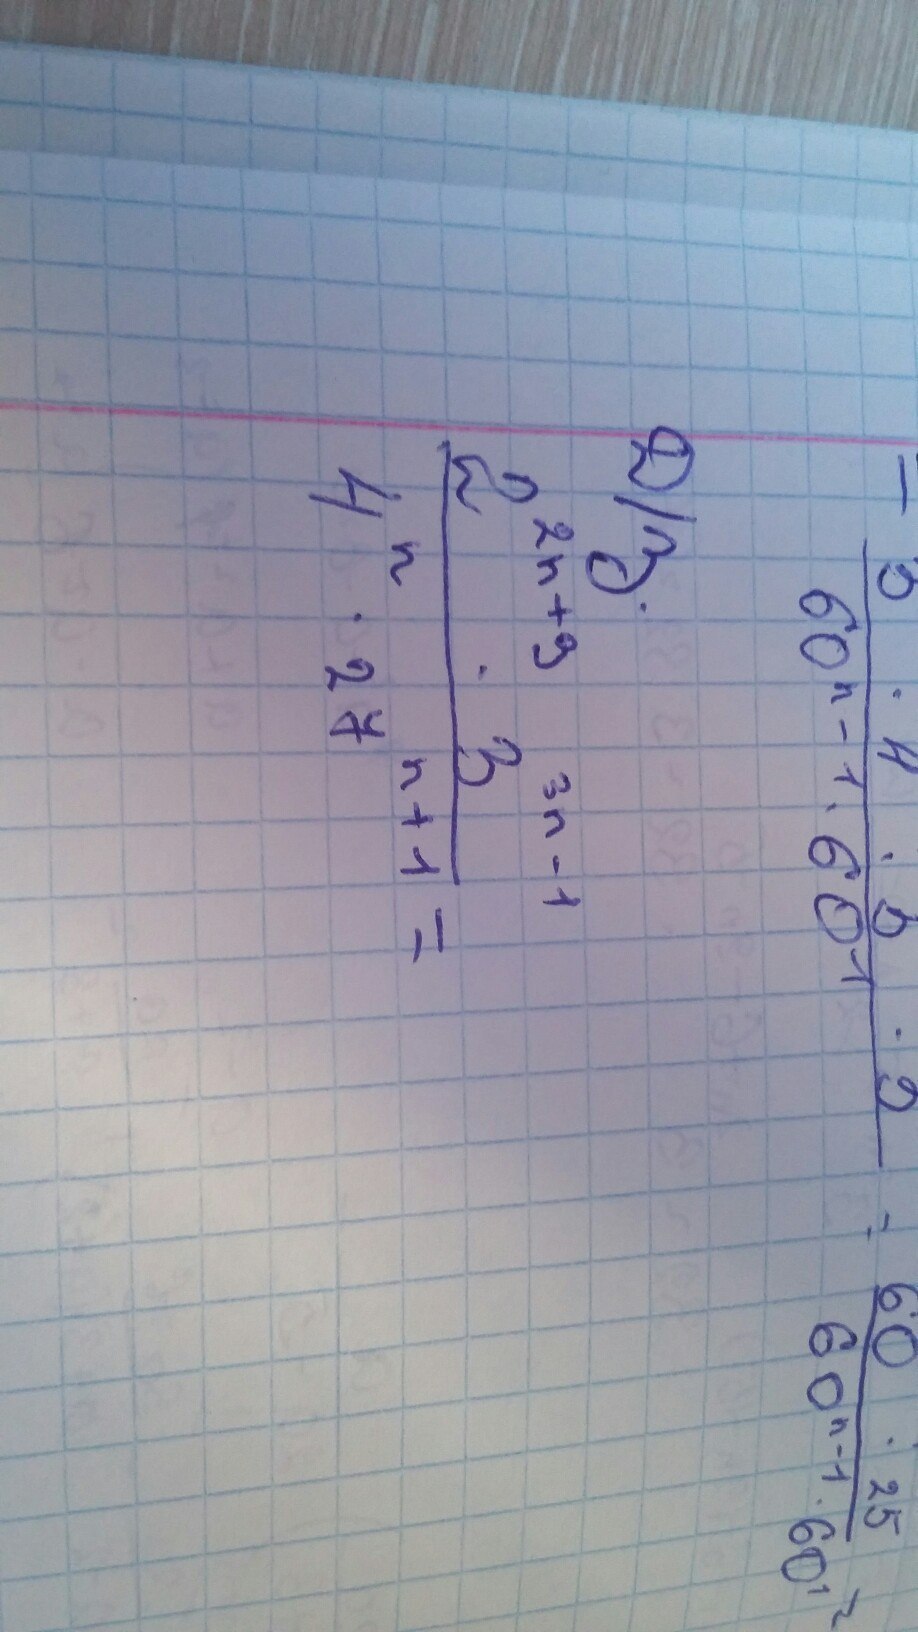 60ⁿ⁻¹ · 60¹ = 60 · 25
60ⁿ⁻¹ · 60¹
Д/з.
2²ⁿ⁺⁹ · 3³ⁿ⁻¹
4ⁿ · 27ⁿ⁺¹ =